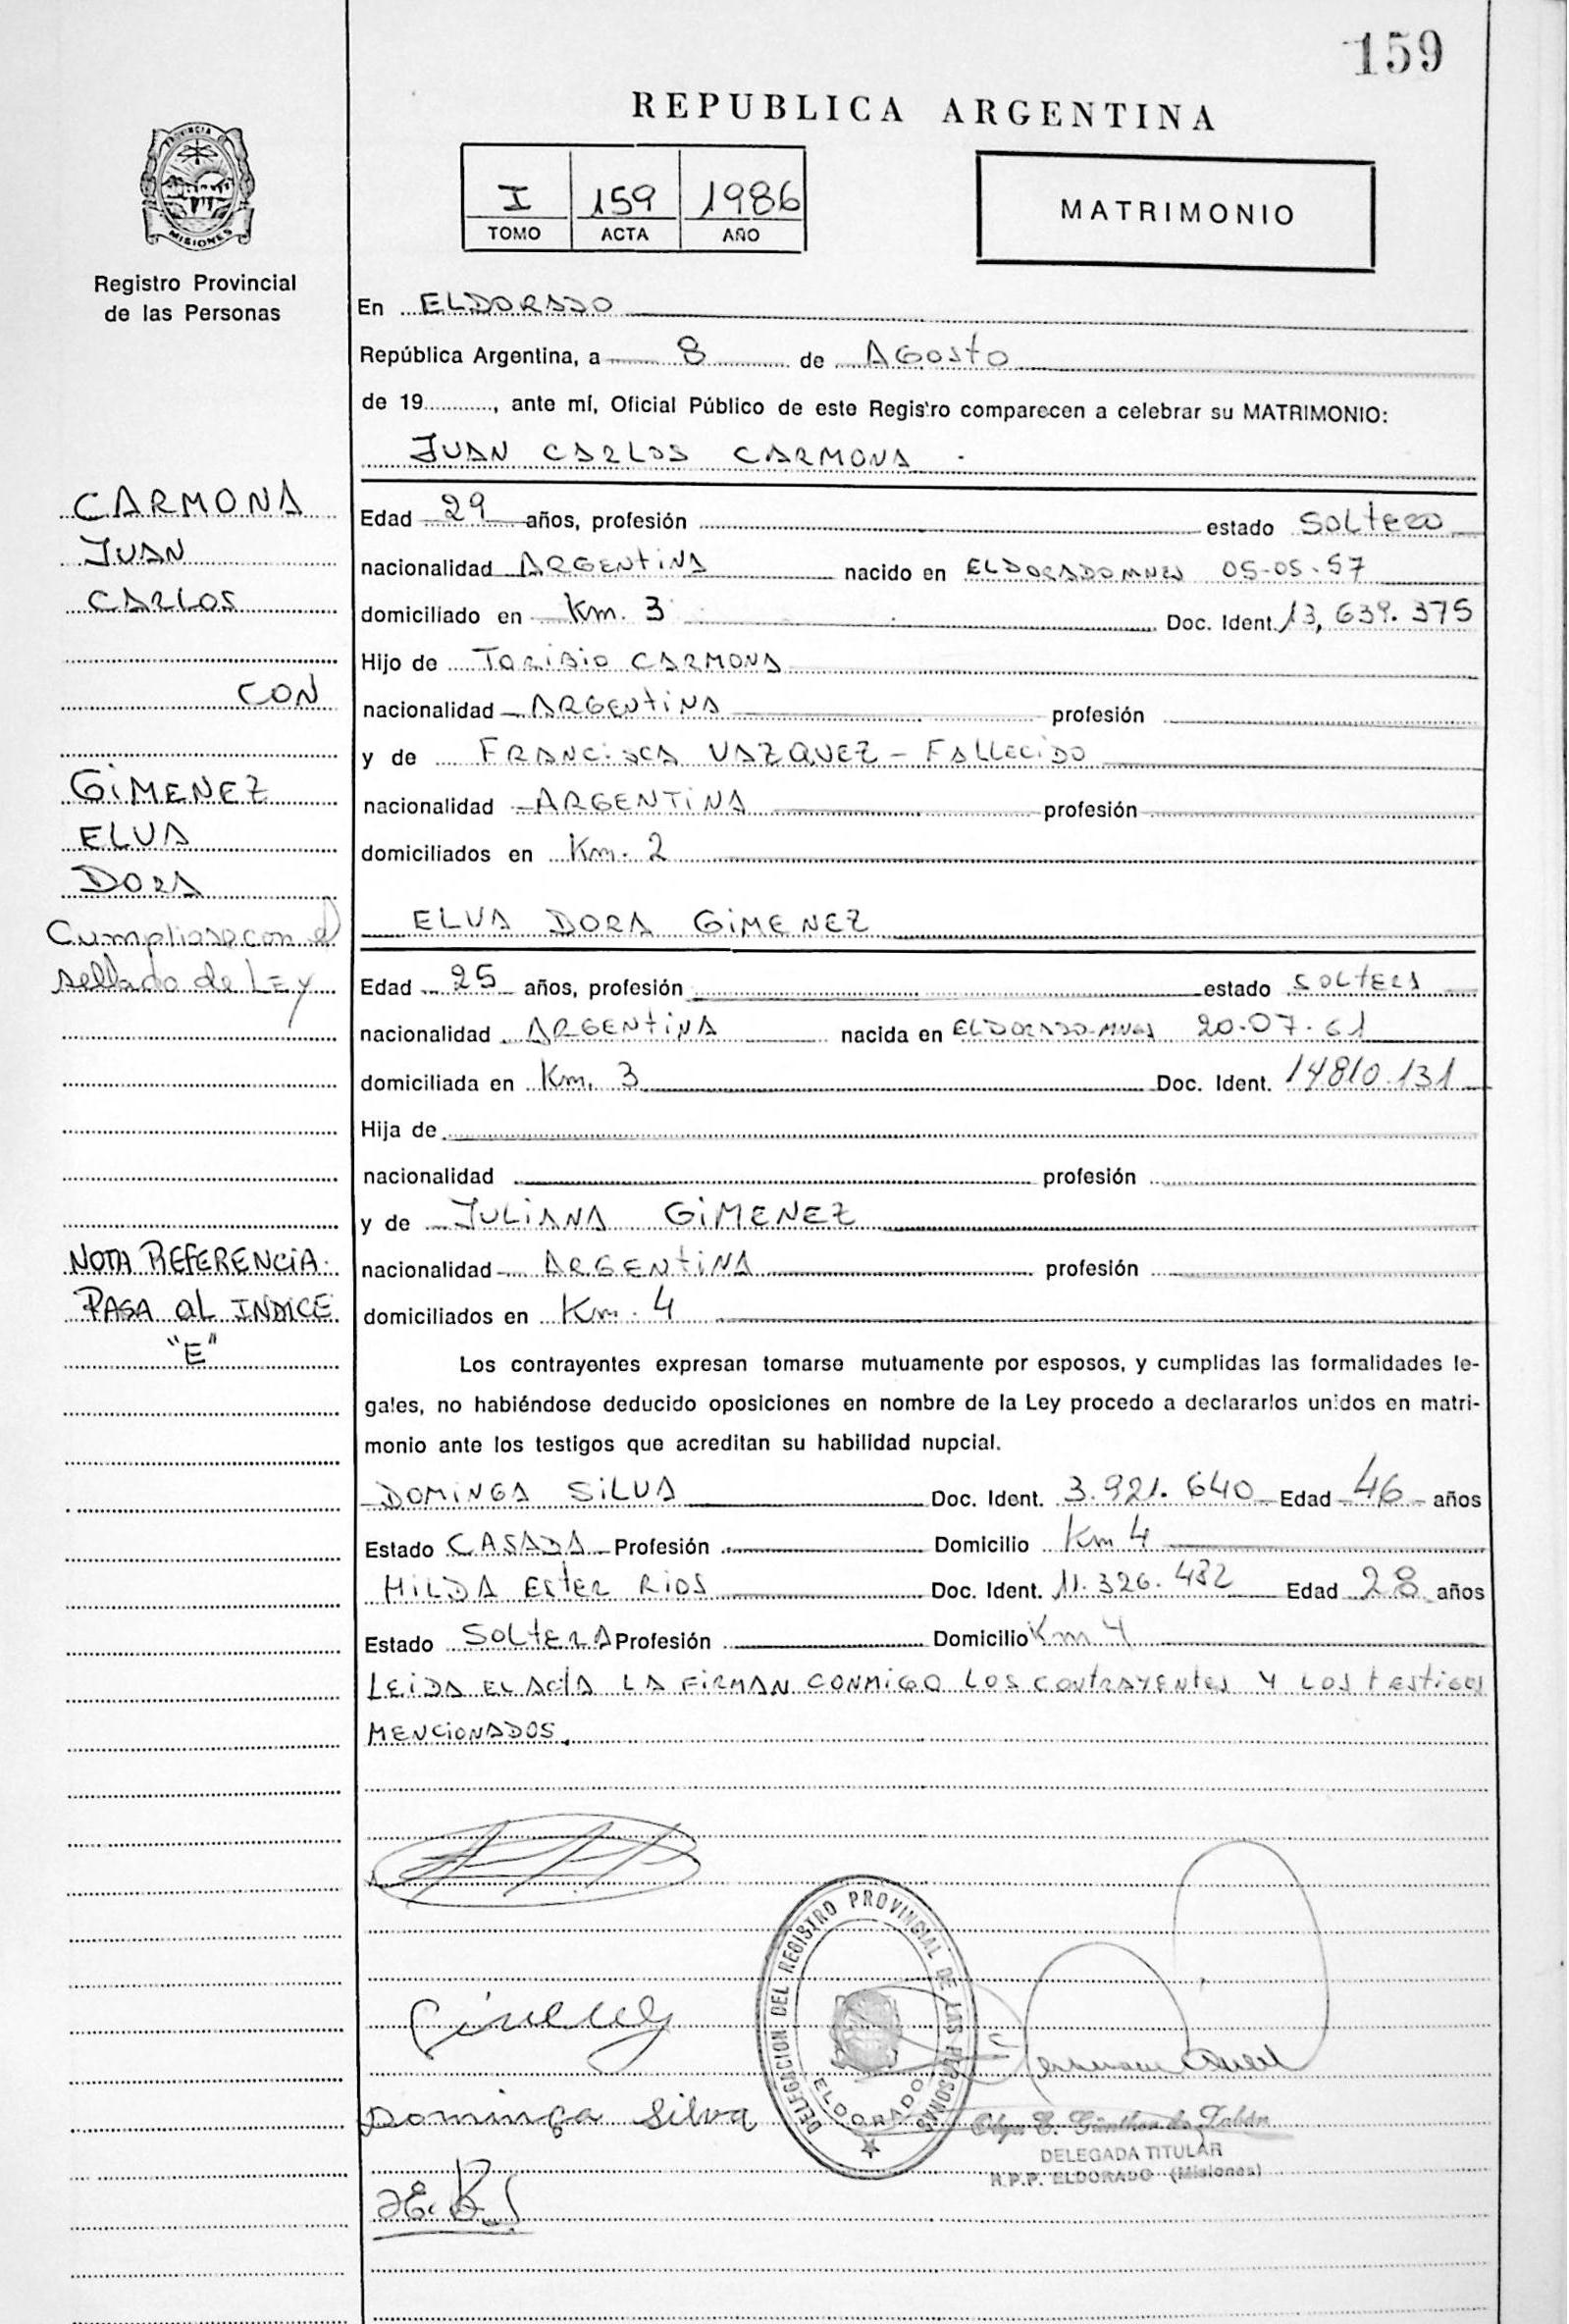 159
REPUBLICA ARGENTINA
PROVINCIA
MISIONES
I 159 1986
TOMO ACTA AÑO
MATRIMONIO
Registro Provincial
de las Personas
En ELDORADO
República Argentina, a 8 de Agosto
de 19........., ante mí, Oficial Público de este Registro comparecen a celebrar su MATRIMONIO:
JUAN CARLOS CARMONA
CARMONA
JUAN
CARLOS
CON
GiMENEZ
ELVA
DORA
Cumpliose con el
sellado de LEy
NOTA REFERENCiA:
PASA al INDICE
"E"
Edad 29 años, profesión estado SOLtERO
nacionalidad ARGENtiNA nacido en ELDORADO MNES 05-05-57
domiciliado en Km. 3 Doc. Ident. 13,639.375
Hijo de TORIBIO CARMONA
nacionalidad ARGENtiNA profesión
y de FRANCiSCA VAZQUEZ - FALLECIDO
nacionalidad ARGENTiNA profesión
domiciliados en Km. 2
ELVA DORA GiMENEZ
Edad 25 años, profesión estado SOLtERA
nacionalidad ARGENtiNA nacida en ELDORADO-MNES 20-07-61
domiciliada en Km. 3 Doc. Ident. 14810.131
Hija de
nacionalidad profesión
y de JULiANA GiMENEZ
nacionalidad ARGENtiNA profesión
domiciliados en Km. 4
Los contrayentes expresan tomarse mutuamente por esposos, y cumplidas las formalidades le-
gales, no habiéndose deducido oposiciones en nombre de la Ley procedo a declararlos unidos en matri-
monio ante los testigos que acreditan su habilidad nupcial.
DOMINGA SiLVA Doc. Ident. 3.921.640 Edad 46 años
Estado CASADA Profesión Domicilio Km 4
HILDA EstER RIOS Doc. Ident. 11.326.482 Edad 28 años
Estado SOLtERA Profesión Domicilio Km 4
LEIDA EL ActA LA FiRMAN CONMiGO LOS CONtRAYENtES Y LOS tEStiGOS
MENCiONADOS.
DELEGACION DEL REGISTRO PROVINCIAL DE LAS PERSONAS
ELDORADO
Dominga Silva
Olga E. Günther de Tabán
DELEGADA TITULAR
R.P.P. ELDORADO (Misiones)